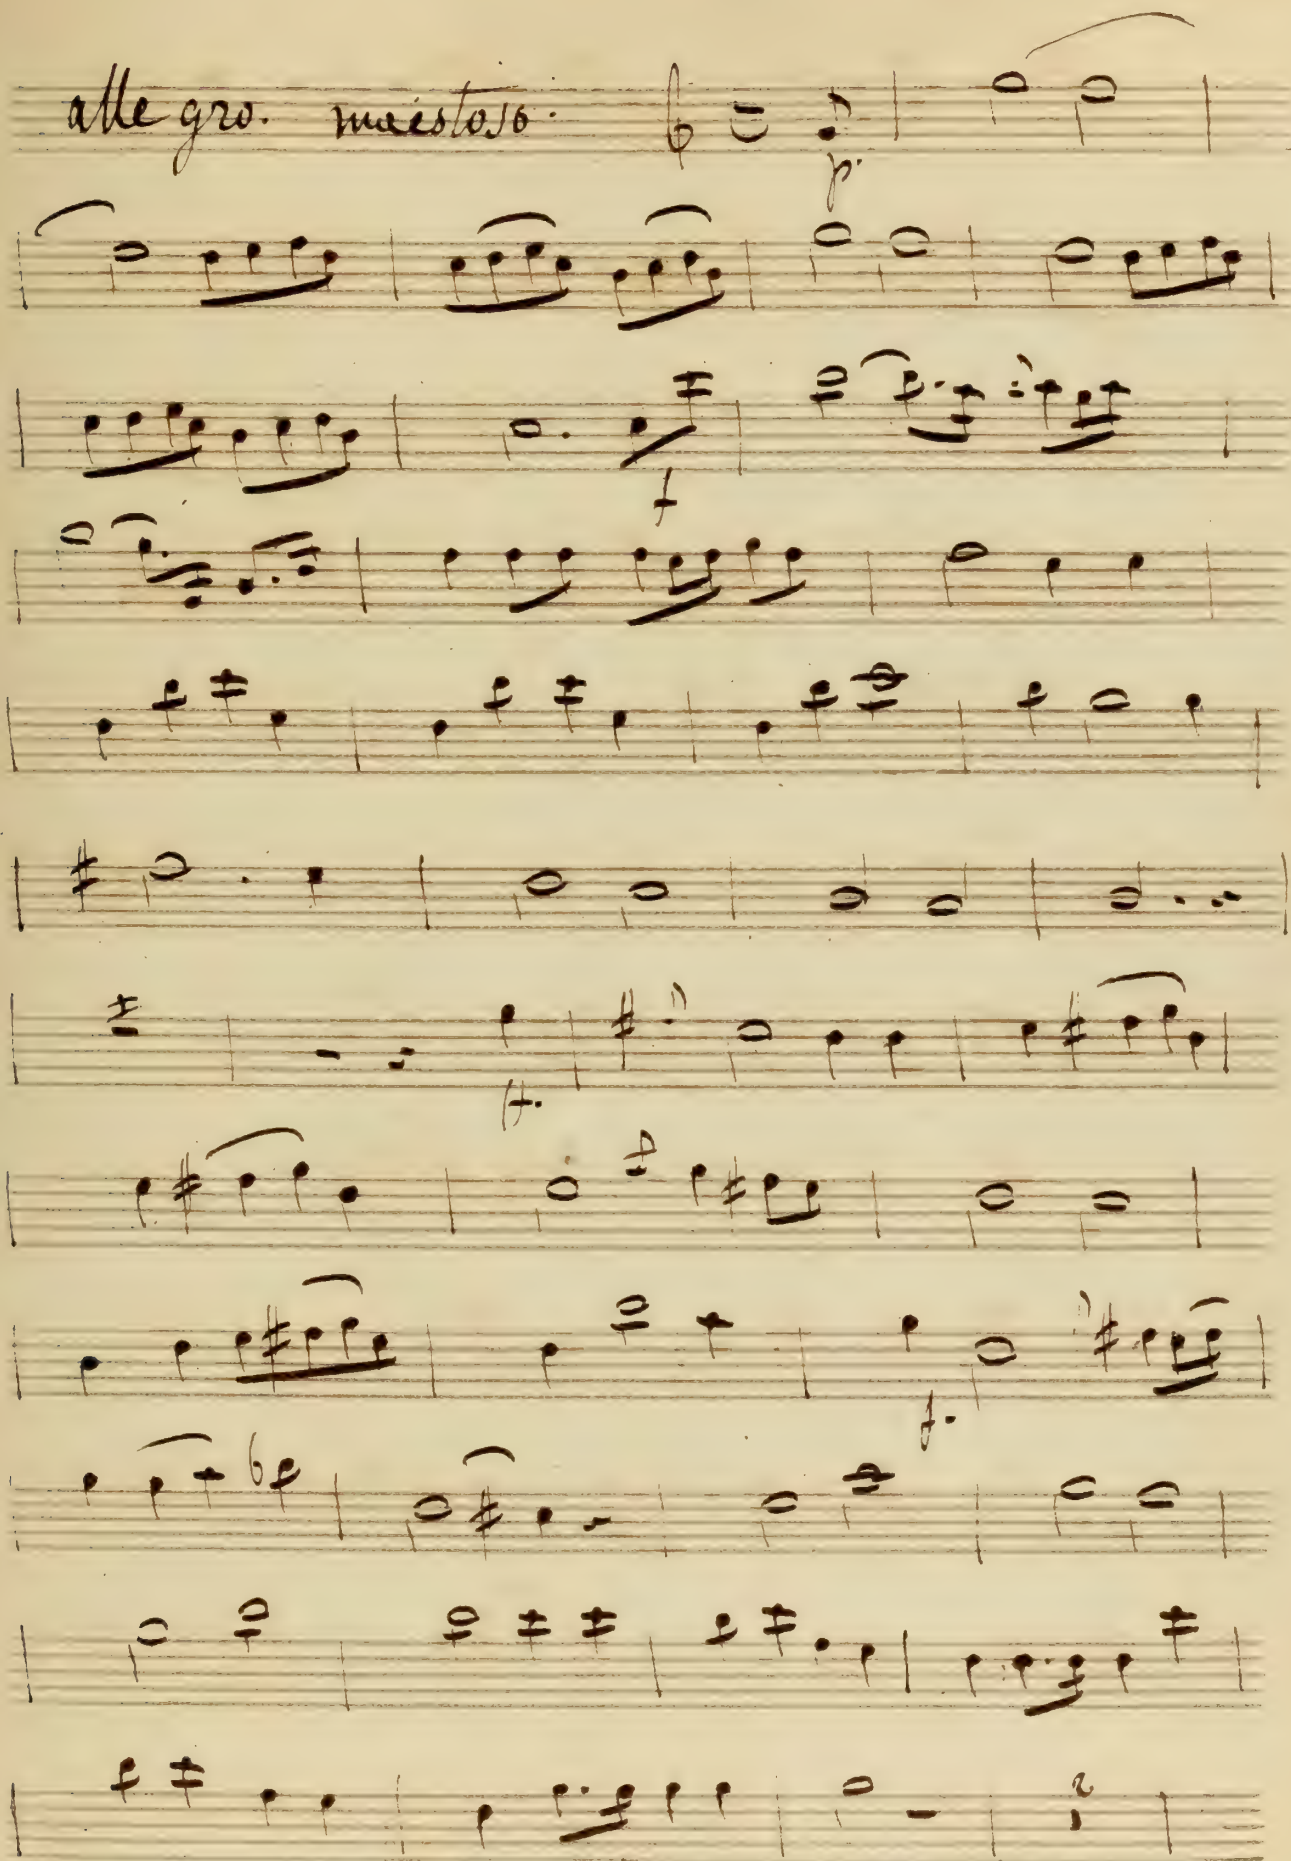 alle gro. maestoso.
p.
f
f.
f.
2